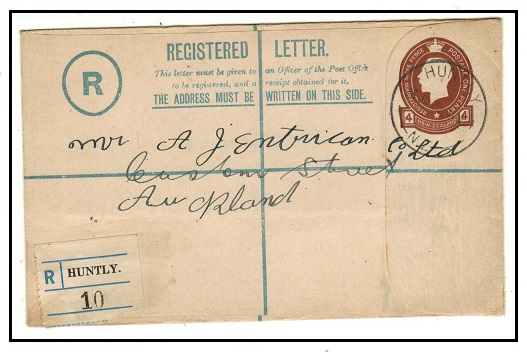 REGISTERED LETTER.
R
This letter must be given to an Officer of the Post Office
to be registered, and a receipt obtained for it.
THE ADDRESS MUST BE WRITTEN ON THIS SIDE.
HUNTLY
N.Z.
4 4
NEW ZEALAND
Mr A J Entrican Co Ltd
Custom Street
Auckland
R HUNTLY.
10